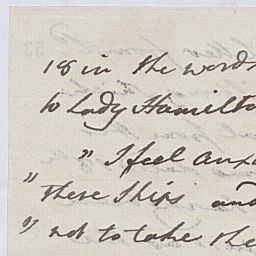 18 in the words
to Lady Hamilto
" I feel anx
" These Ships and
" not to take the